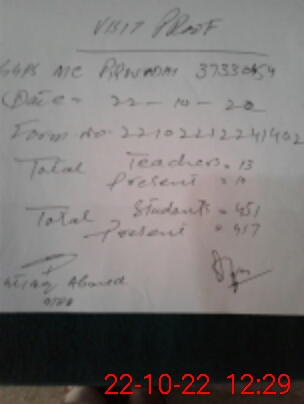 VISIT PROOF
GGPS MC
Date = 22 - 10 - 22
Form no. 22102212241402
Total Teachers = 13
Present = 10
Total Students = 451
Present = 417
Ahmed
22-10-22 12:29